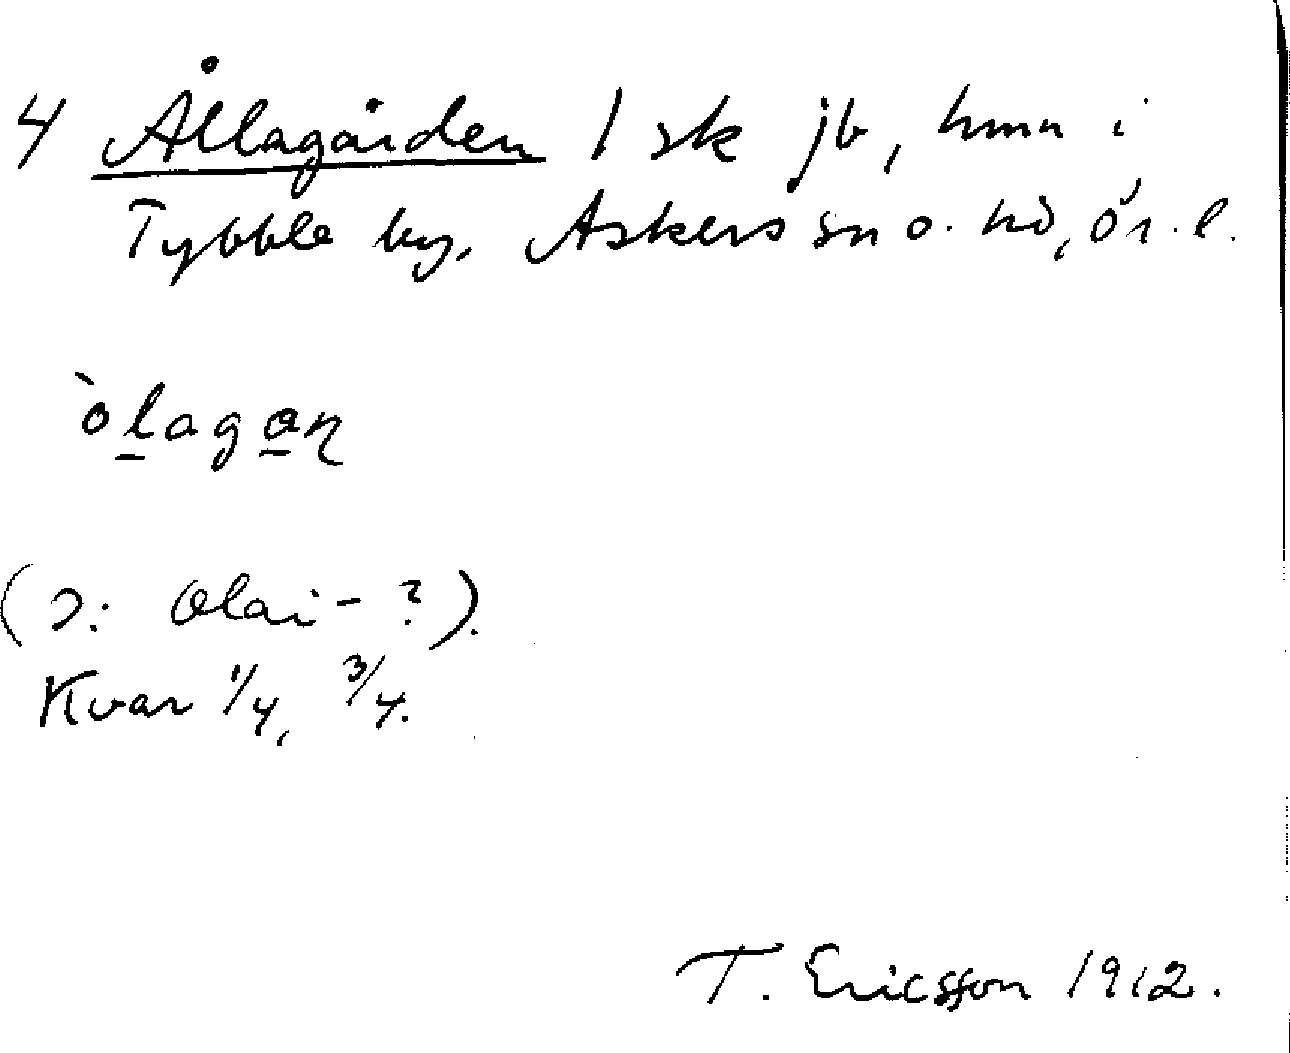 4 Ållagården 1 sk jb, hmn i
Tybble by, Askers sn o. hd, ör. l.
òlagan
(ɔ: Olai- ?).
Kvar 1/4, 3/4.
T. Ericsson 1912.